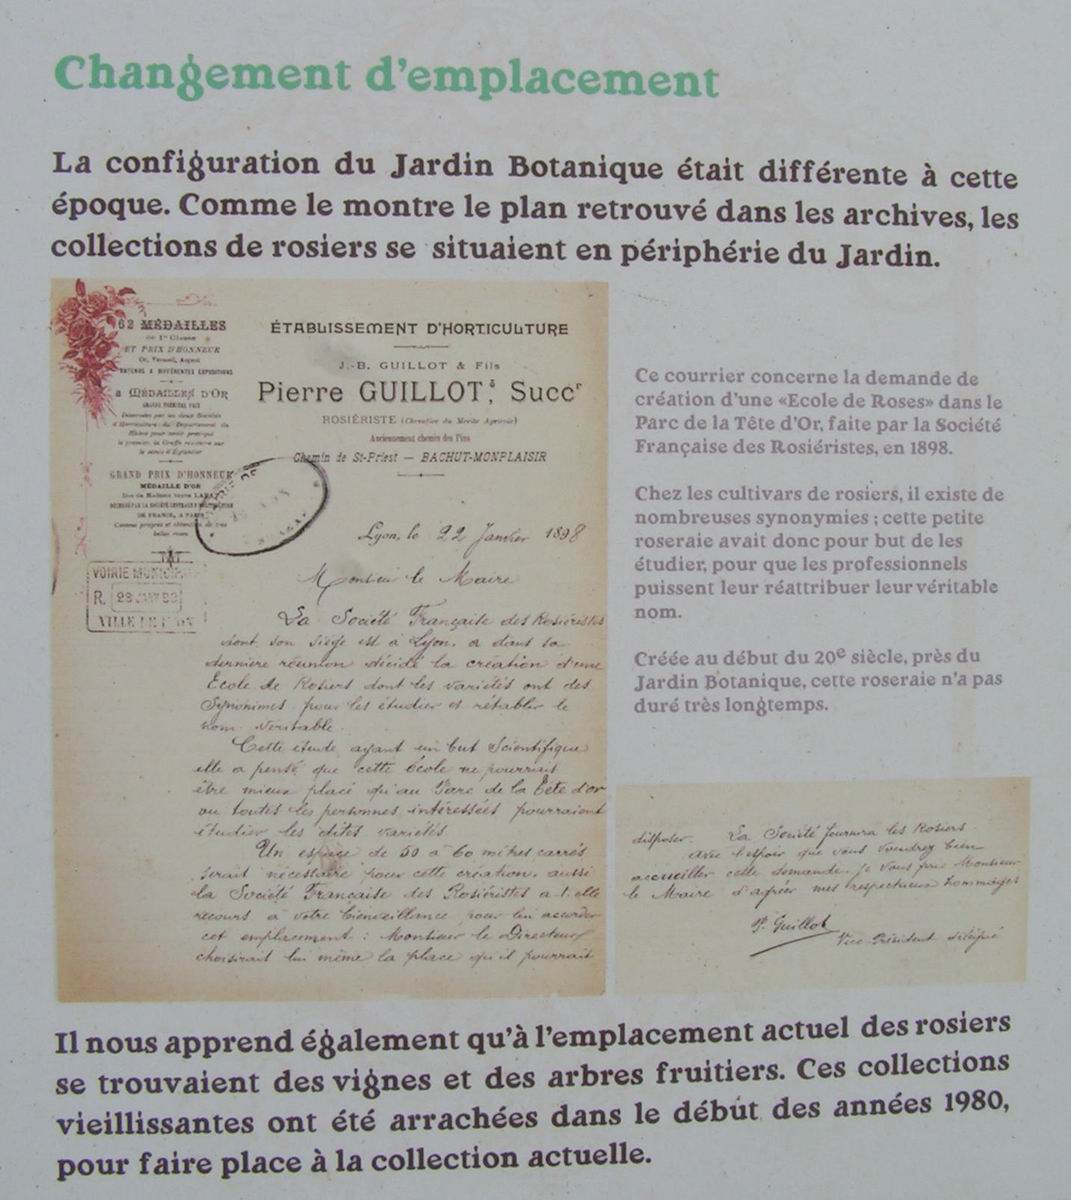 Changement d'emplacement
La configuration du Jardin Botanique était différente à cette
époque. Comme le montre le plan retrouvé dans les archives, les
collections de rosiers se situaient en périphérie du Jardin.
62 MÉDAILLES
de 1re Classe
ET PRIX D'HONNEUR
Or, Vermeil, Argent
A DIFFÉRENTES EXPOSITIONS
MÉDAILLES D'OR
GRAND PRIX D'HONNEUR
MÉDAILLE D'OR
DE FRANCE, A PARIS
ÉTABLISSEMENT D'HORTICULTURE
J.-B. GUILLOT & Fils
Pierre GUILLOT, Succr
ROSIÉRISTE (Chevalier du Mérite Agricole)
Anciennement chemin des Pins
Chemin de St-Priest — BACHUT-MONPLAISIR
Lyon, le 22 Janvier 1898
VOIRIE MUNICIP
R.
VILLE DE
Monsieur le Maire
La Société Française des Rosiéristes
dont son siège est à Lyon, a dans sa
dernière réunion décidé la création d'une
École de Rosiers dont les variétés ont des
Synonimes pour les étudier et rétablir le
nom veritable.
Cette étude ayant un but Scientifique
elle a pensé que cette école ne pourrait
être mieux placé qu'au Parc de la Tête d'or
ou toutes les personnes intéressées pourraient
étudier les dites variétés.
Un espace de 50 à 60 mètres carrés
serait nécessaire pour cette création, aussi
la Société Française des Rosiéristes a-t-elle
recours à votre bienveillance pour lui accorder
cet emplacement : Monsieur le Directeur
choisirait lui même la place qu'il pourrait
Ce courrier concerne la demande de
création d'une «Ecole de Roses» dans le
Parc de la Tête d'Or, faite par la Société
Française des Rosiéristes, en 1898.
Chez les cultivars de rosiers, il existe de
nombreuses synonymies ; cette petite
roseraie avait donc pour but de les
étudier, pour que les professionnels
puissent leur réattribuer leur véritable
nom.
Créée au début du 20e siècle, près du
Jardin Botanique, cette roseraie n'a pas
duré très longtemps.
disposer. La Société fournira les Rosiers.
avec l'espoir que vous voudrez bien
accueillir cette demande, je vous prie Monsieur
le Maire d'agréer mes respectueux hommages
P. Guillot
Vice-Président délégué
Il nous apprend également qu'à l'emplacement actuel des rosiers
se trouvaient des vignes et des arbres fruitiers. Ces collections
vieillissantes ont été arrachées dans le début des années 1980,
pour faire place à la collection actuelle.